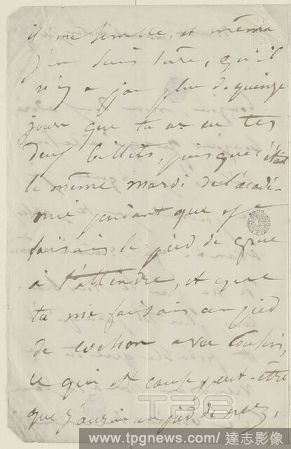 il me semble, et même
j'en suis sûre, qu'il
n'y a pas plus de quinze
jours que tu as eu tes
deux billets, puisque c'était
le même mardi de l'acadé-
mie pendant que je
faisais le pied de grue
à t'attendre, et que
tu me faisais un pied
de cochon avec Cousin,
ce qui est cause peut-être
que j'aurai un pied de nez,
TPG
www.tpgnews.com / 達志影像